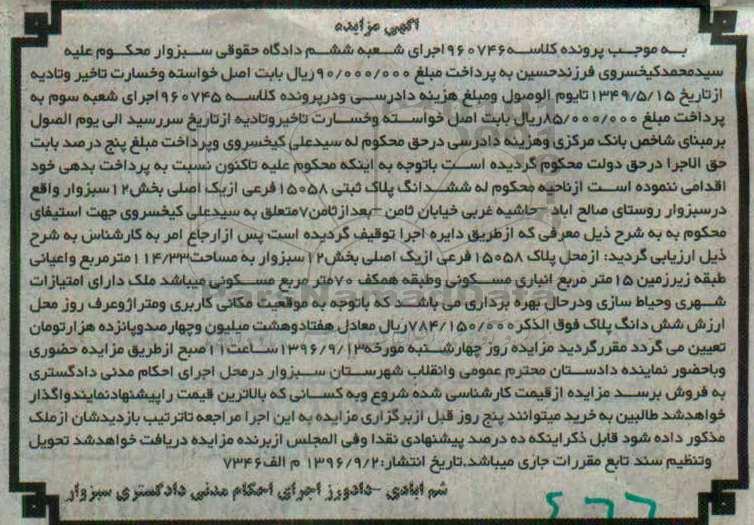 آگهی مزایده
به موجب پرونده کلاسه ۹۶۰۷۴۶ اجرای شعبه ششم دادگاه حقوقی سبزوار محکوم علیه
سیدمحمدکیخسروی فرزندحسین به پرداخت مبلغ ۹۰/۰۰۰/۰۰۰ ریال بابت اصل خواسته وخسارت تاخیر وتادیه
از تاریخ ۱۳۴۹/۵/۱۵ تایوم الوصول ومبلغ هزینه دادرسی ودرپرونده کلاسه ۹۶۰۷۴۵ اجرای شعبه سوم به
پرداخت مبلغ ۸۵/۰۰۰/۰۰۰ ریال بابت اصل خواسته وخسارت تاخیروتادیه ازتاریخ سررسید الی یوم الصول
برمبنای شاخص بانک مرکزی وهزینه دادرسی درحق محکوم له سیدعلی کیخسروی وپرداخت مبلغ پنج درصد بابت
حق الاجرا درحق دولت محکوم گردیده است باتوجه به اینکه محکوم علیه تاکنون نسبت به پرداخت بدهی خود
اقدامی ننموده است ازناحیه محکوم له ششدانگ پلاک ثبتی ۱۵۰۵۸ فرعی ازیک اصلی بخش ۱۲ سبزوار واقع
درسبزوار روستای صالح اباد -حاشیه غربی خیابان ثامن -بعدازثامن ۷ متعلق به سیدعلی کیخسروی جهت استیفای
محکوم به به شرح ذیل معرفی که ازطریق دایره اجرا توقیف گردیده است پس ازارجاع امر به کارشناس به شرح
ذیل ارزیابی گردید: ازمحل پلاک ۱۵۰۵۸ فرعی ازیک اصلی بخش ۱۲ سبزوار به مساحت ۱۱۴/۳۳ مترمربع واعیانی
طبقه زیرزمین ۱۵ متر مربع انباری مسکونی وطبقه همکف ۷۰ متر مربع مسکونی میباشد ملک دارای امتیازات
شهری وحیاط سازی ودرحال بهره برداری می باشد که باتوجه به موقعیت مکانی کاربری ومتراژوعرف روز محل
ارزش شش دانگ پلاک فوق الذکر ۷۸۴/۱۵۰/۰۰۰ ریال معادل هفتادوهشت میلیون وچهارصدوپانزده هزارتومان
تعیین می گردد مقررگردید مزایده روز چهارشنبه مورخه ۱۳۹۶/۹/۱۳ ساعت ۱۱ صبح ازطریق مزایده حضوری
وباحضور نماینده دادستان محترم عمومی وانقلاب شهرستان سبزوار درمحل اجرای احکام مدنی دادگستری
به فروش برسد مزایده ازقیمت کارشناسی شده شروع وبه کسانی که بالاترین قیمت راپیشنهادنمایندواگذار
خواهدشد طالبین به خرید میتوانند پنج روز قبل ازبرگزاری مزایده به این اجرا مراجعه تاترتیب بازدیدشان ازملک
مذکور داده شود قابل ذکراینکه ده درصد پیشنهادی نقدا وفی المجلس ازبرنده مزایده دریافت خواهدشد تحویل
وتنظیم سند تابع مقررات جاری میباشد.تاریخ انتشار: ۱۳۹۶/۹/۲ م الف ۷۳۴۶
شم ابادی -دادورز اجرای احکام مدنی دادگستری سبزوار